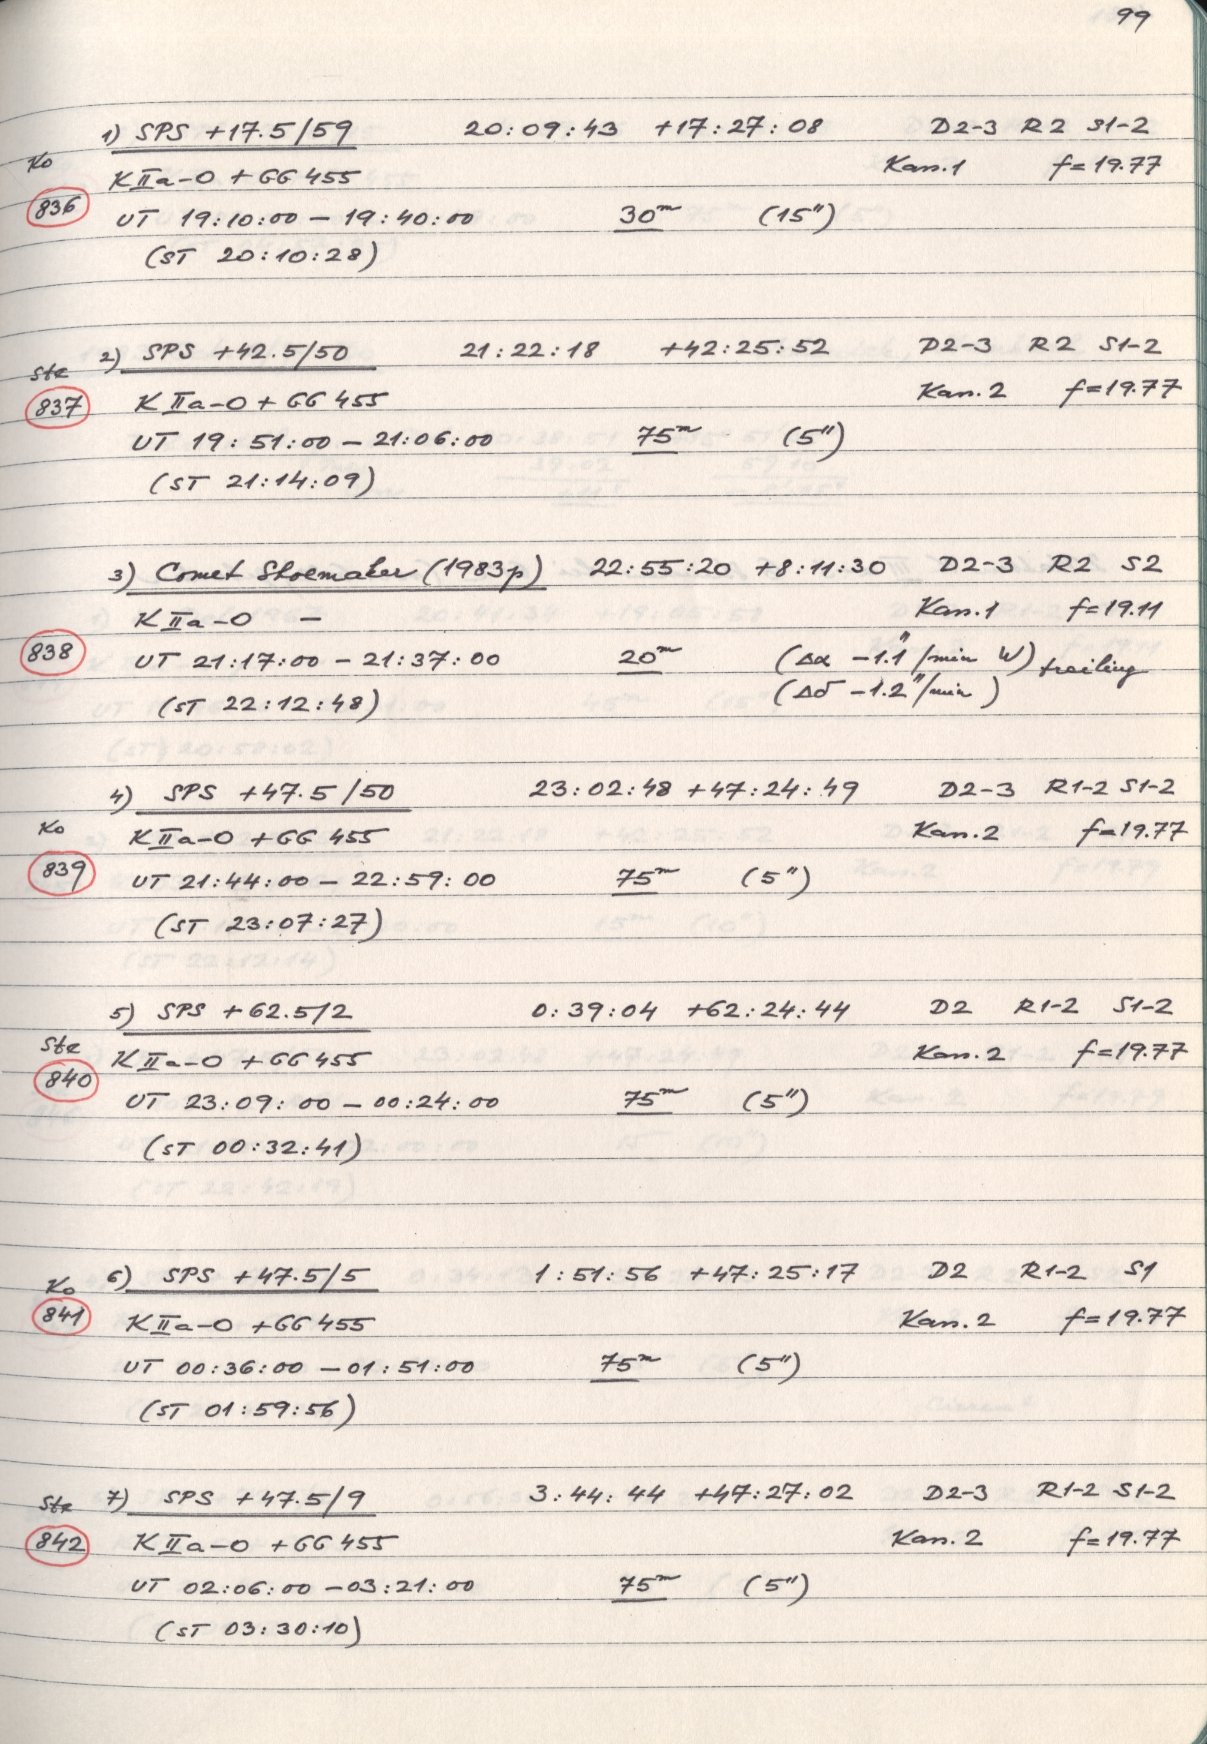 99
1) SPS +17.5/59 20:09:43 +17:27:08 D2-3 R2 S1-2
Ko KIIa-O + GG 455 Kan.1 f=19.77
836 UT 19:10:00 – 19:40:00 30m (15")
(ST 20:10:28)
2) SPS +42.5/50 21:22:18 +42:25:52 D2-3 R2 S1-2
Ste
837 KIIa-O + GG 455 Kan.2 f=19.77
UT 19:51:00 – 21:06:00 75m (5")
(ST 21:14:09)
3) Comet Shoemaker (1983p) 22:55:20 +8:11:30 D2-3 R2 S2
KIIa-O – Kan.1 f=19.11
838 UT 21:17:00 – 21:37:00 20m (Δα -1.1"/min W) trailing
(ST 22:12:48) (Δδ -1.2"/min)
4) SPS +47.5/50 23:02:48 +47:24:49 D2-3 R1-2 S1-2
Ko KIIa-O + GG 455 Kan.2 f=19.77
839 UT 21:44:00 – 22:59:00 75m (5")
(ST 23:07:27)
5) SPS +62.5/2 0:39:04 +62:24:44 D2 R1-2 S1-2
Ste KIIa-O + GG 455 Kan.2 f=19.77
840 UT 23:09:00 – 00:24:00 75m (5")
(ST 00:32:41)
Ko 6) SPS +47.5/5 1:51:56 +47:25:17 D2 R1-2 S1
841 KIIa-O + GG 455 Kan.2 f=19.77
UT 00:36:00 – 01:51:00 75m (5")
(ST 01:59:56)
Ste 7) SPS +47.5/9 3:44:44 +47:27:02 D2-3 R1-2 S1-2
842 KIIa-O + GG 455 Kan.2 f=19.77
UT 02:06:00 – 03:21:00 75m (5")
(ST 03:30:10)